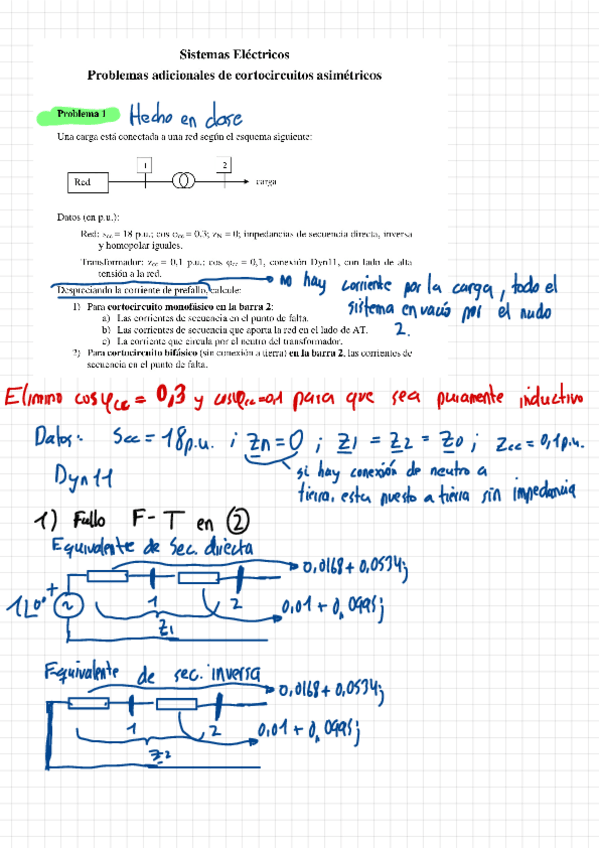 Sistemas Eléctricos
Problemas adicionales de cortocircuitos asimétricos
Problema 1 Hecho en clase
Una carga está conectada a una red según el esquema siguiente:
1 2
Red carga
Datos (en p.u.):
Red: scc = 18 p.u.; cos φcc = 0,3; zN = 0; impedancias de secuencia directa, inversa
y homopolar iguales.
Transformador: zcc = 0,1 p.u.; cos φcc = 0,1, conexión Dyn11, con lado de alta
tensión a la red.
Despreciando la corriente de prefallo, calcule:
no hay corriente por la carga, todo el
sistema en vacío por el nudo
2.
1) Para cortocircuito monofásico en la barra 2:
a) Las corrientes de secuencia en el punto de falta.
b) Las corrientes de secuencia que aporta la red en el lado de AT.
c) La corriente que circula por el neutro del transformador.
2) Para cortocircuito bifásico (sin conexión a tierra) en la barra 2, las corrientes de
secuencia en el punto de falta.
Elimino cosφcc = 0,3 y cosφcc=0,1 para que sea puramente inductivo
Datos: Scc = 18 p.u. ; Zn = 0 ; Z1 = Z2 = Z0 ; Zcc = 0,1 p.u.
si hay conexión de neutro a
tierra, esta puesto a tierra sin impedancia
Dyn 11
1) Fallo F-T en 2
Equivalente de sec. directa
0,0168 + 0,0534j
1∟0° + 1 2 0,01 + 0,0995j
Z1
Equivalente de sec. inversa
0,0168 + 0,0534j
1 2 0,01 + 0,0995j
Z2